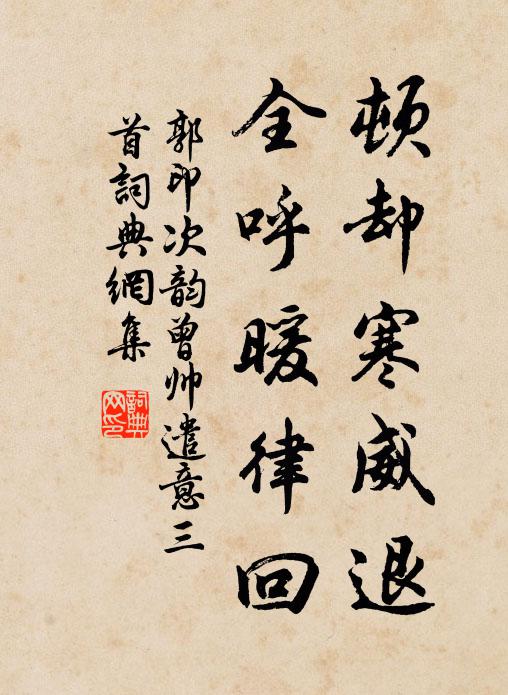 頓却寒威退
全呼暖律回
郭印次韵曾帅遣意三
首詞典網集
詞典
网印